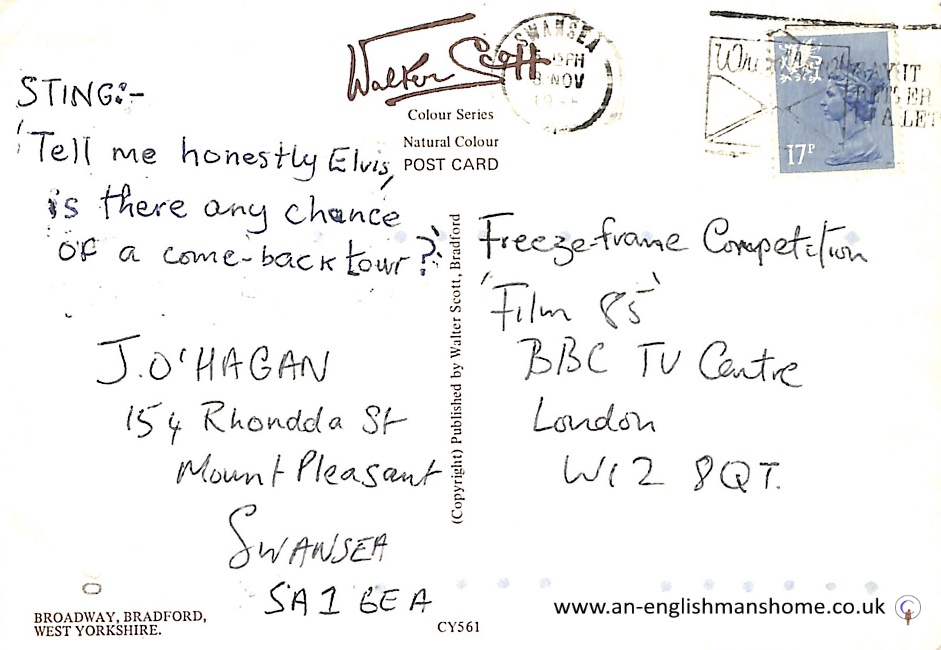 STING:-
'Tell me honestly Elvis,
is there any chance
of a come-back tour?'
J. O'HAGAN
154 Rhondda St
Mount Pleasant
SWANSEA
SA1 6EA
BROADWAY, BRADFORD,
WEST YORKSHIRE.
Walter Scott
Colour Series
Natural Colour
POST CARD
(Copyright) Published by Walter Scott, Bradford
CY561
SWANSEA
PM
8 NOV
17P
AY IT
A LET
Freeze-frame Competition
'Film 85'
BBC TV Centre
London
W12 8QT.
www.an-englishmanshome.co.uk